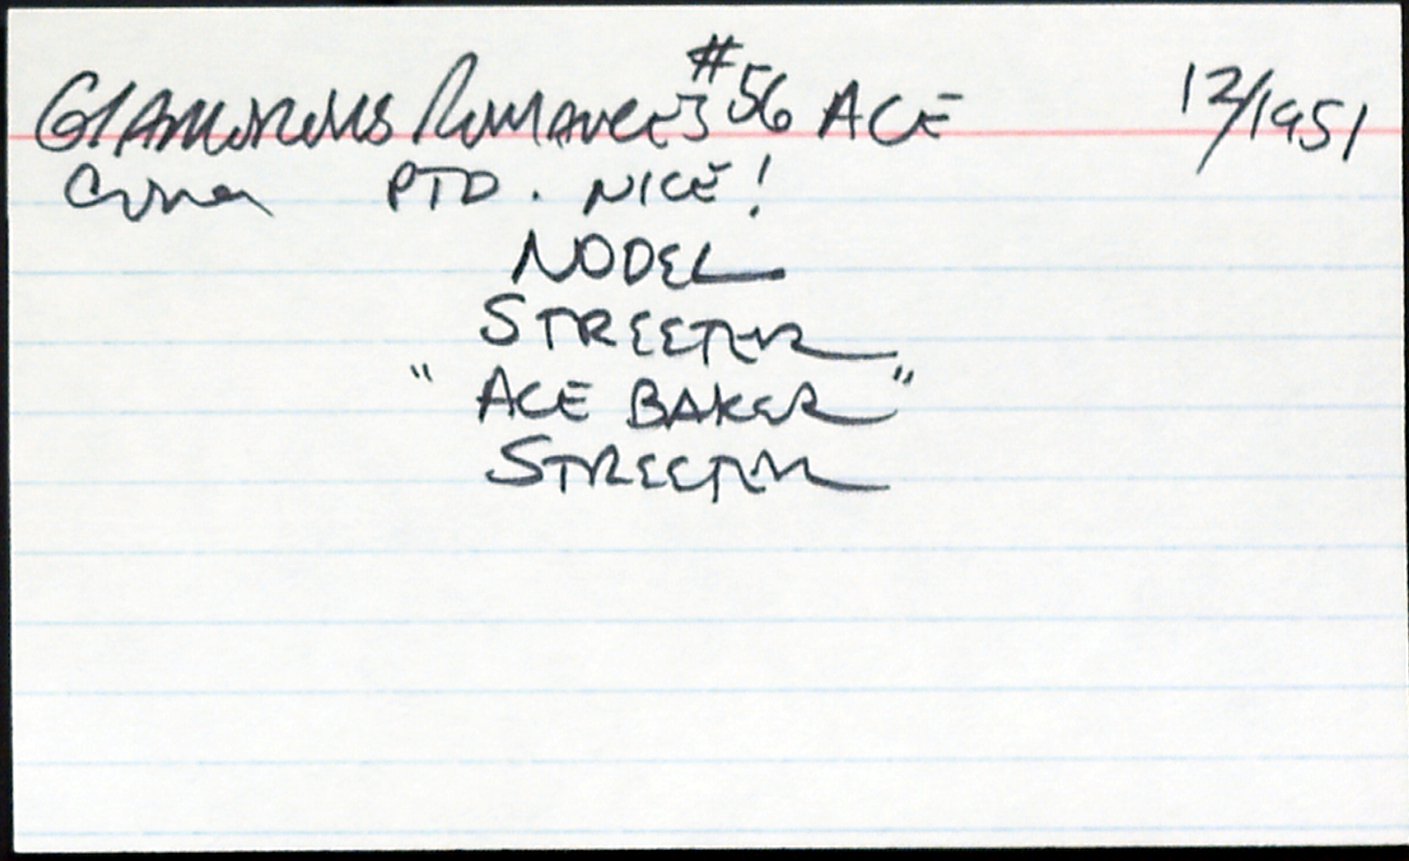 Glamorous Romances #56 ACE 12/1951
Cover PTD. NICE!
NODEL
STREETER
" ACE BAKER "
STREETER